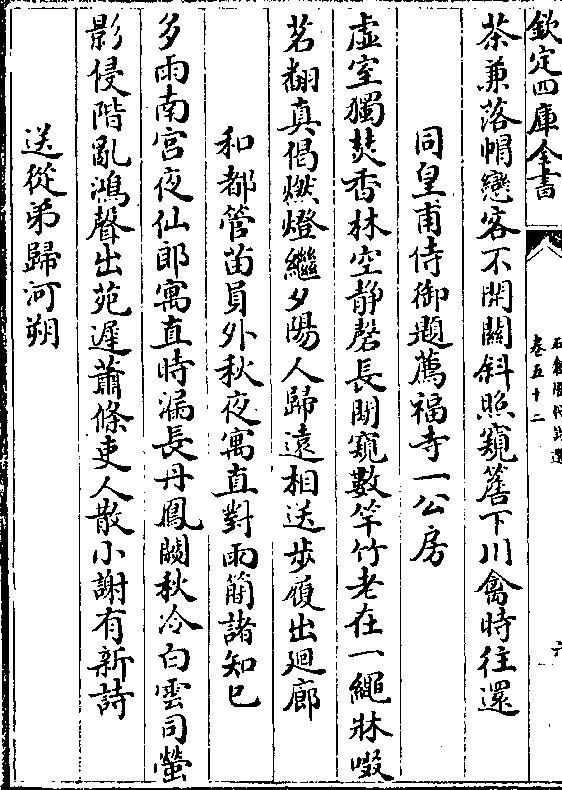 欽定四庫全書
卷五十二
茶兼落帽戀客不開關斜照窺簷下川禽時往還
同皇甫侍御題薦福寺一公房
虛室獨焚香林空静磬長閒窺數竿竹老在一繩牀啜
茗翻真偈燃燈繼夕陽人歸遠相送步履出廻廊
和都管苗員外秋夜寓直對雨簡諸知已
多雨南宮夜仙郎寓直時漏長丹鳳闕秋冷白雲司螢
影侵階亂鴻聲出苑遲蕭條吏人散小謝有新詩
送從弟歸河朔